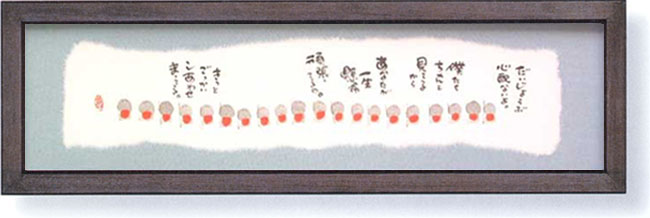 だいじょうぶ
心配ないよ。
僕たち
ちゃんと
見てる
から
あなたが
一生
懸命
頑張ってるの。
きっと
でっかい
しあわせ
まってる。